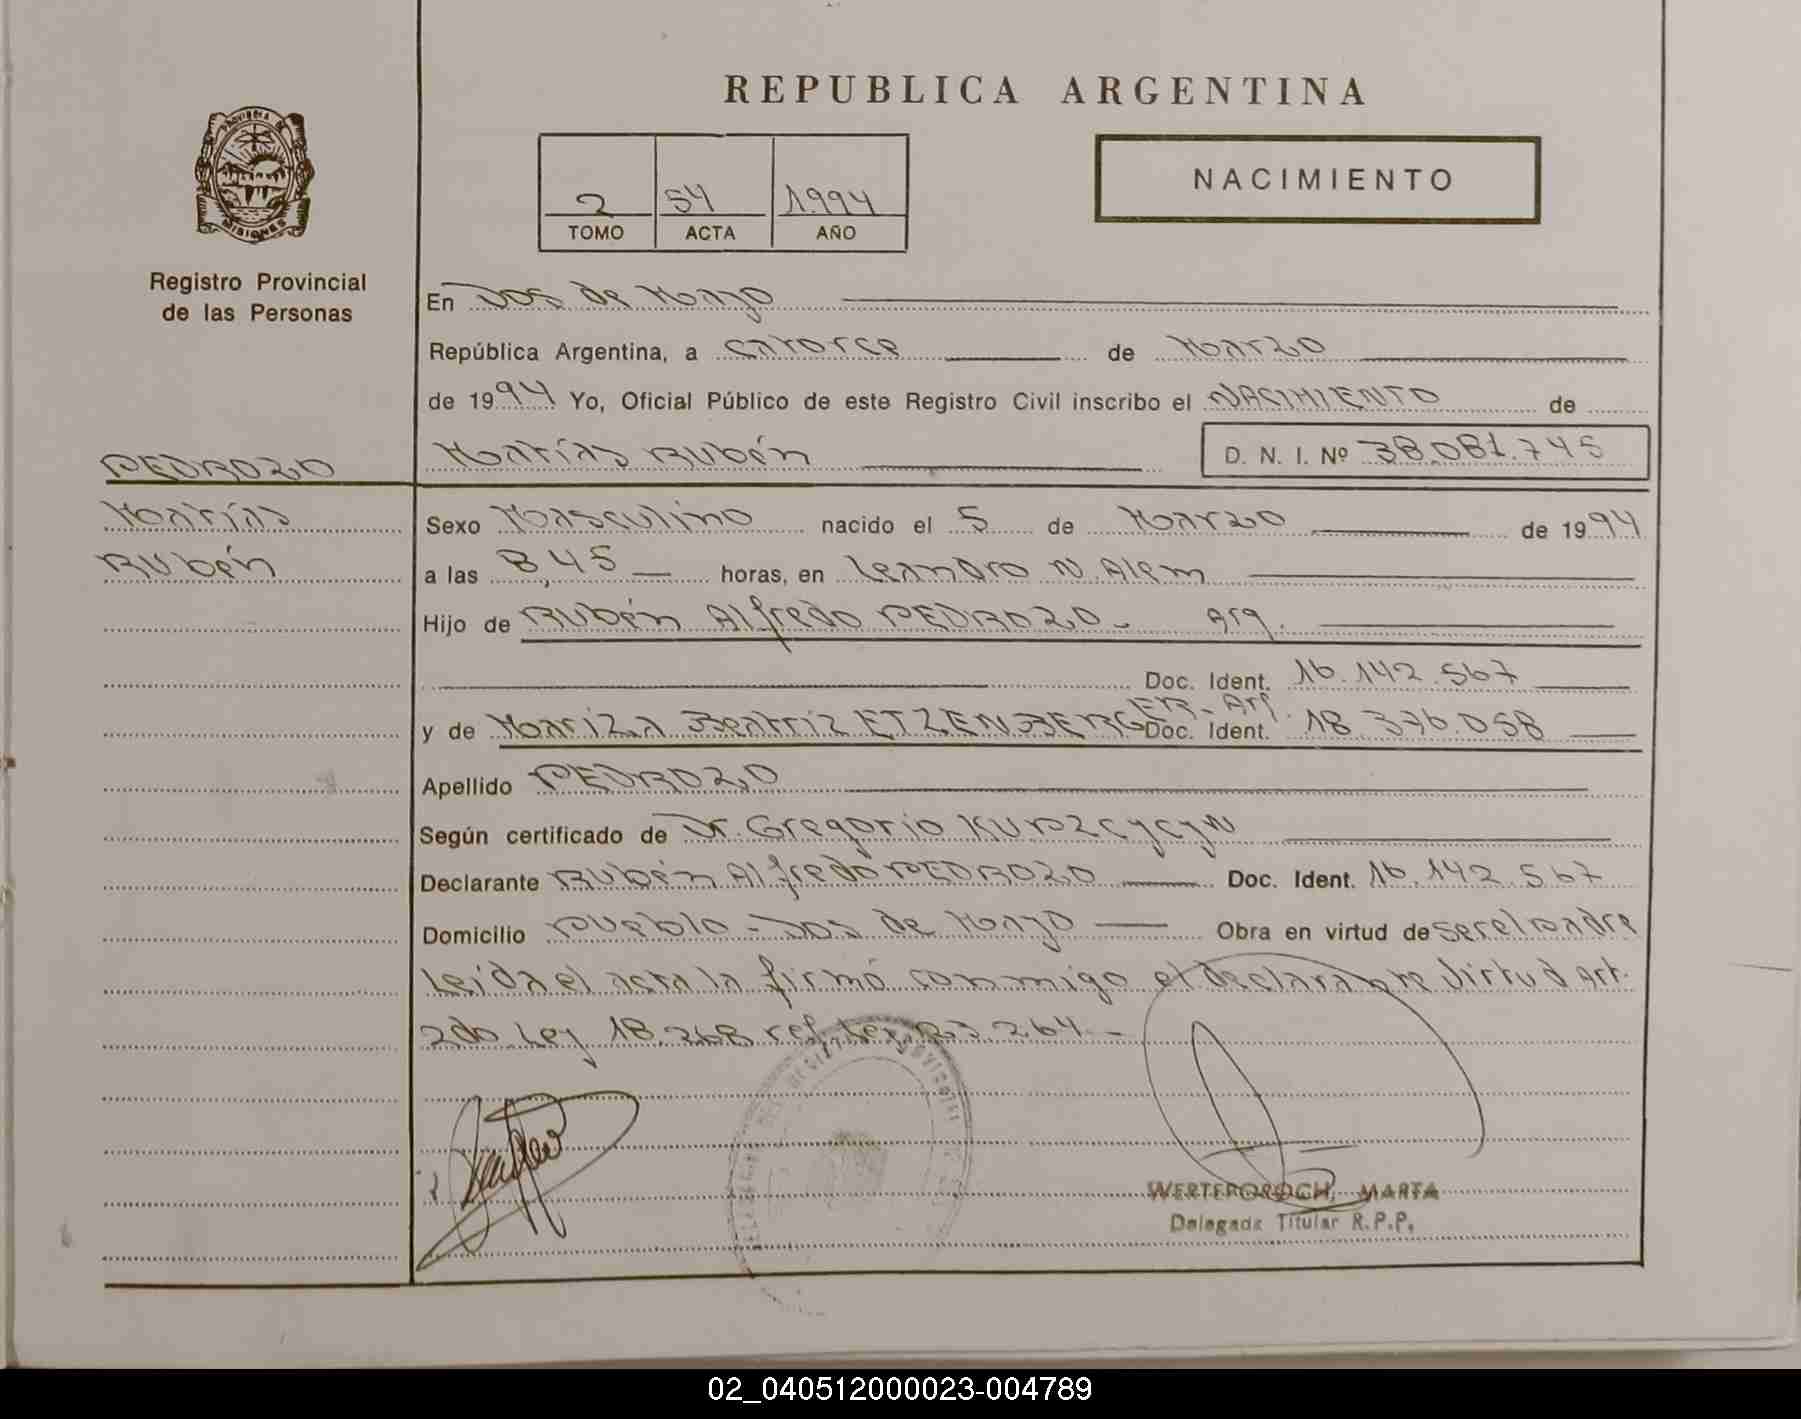 REPUBLICA ARGENTINA
PROVINCIA DE
MISIONES
Registro Provincial
de las Personas
2 54 1994
TOMO ACTA AÑO
NACIMIENTO
En Dos de Mayo
República Argentina, a catorce de Marzo
de 1994 Yo, Oficial Público de este Registro Civil inscribo el NACIMIENTO de
Matías Rubén D. N. I. Nº 38.081.745
PEDROZO
Matías
Rubén
Sexo Masculino nacido el 5 de Marzo de 1994
a las 8,45 horas, en Leandro N. Alem
Hijo de Rubén Alfredo PEDROZO - Arg.
Doc. Ident. 16.142.567
y de Mariza Beatriz ETZENBERGER - Arg. Doc. Ident. 18.376.058
Apellido PEDROZO
Según certificado de Dr. Gregorio
Declarante Rubén Alfredo PEDROZO Doc. Ident. 16.142.567
Domicilio Pueblo - Dos de Mayo Obra en virtud de ser el padre
Leída el acta la firmó conmigo el declarante Virtud Art.
2do Ley 18.248 ref. Ley 23.264 -
WERTEPOROCH, MARTA
Delegada Titular R.P.P.
02_040512000023-004789